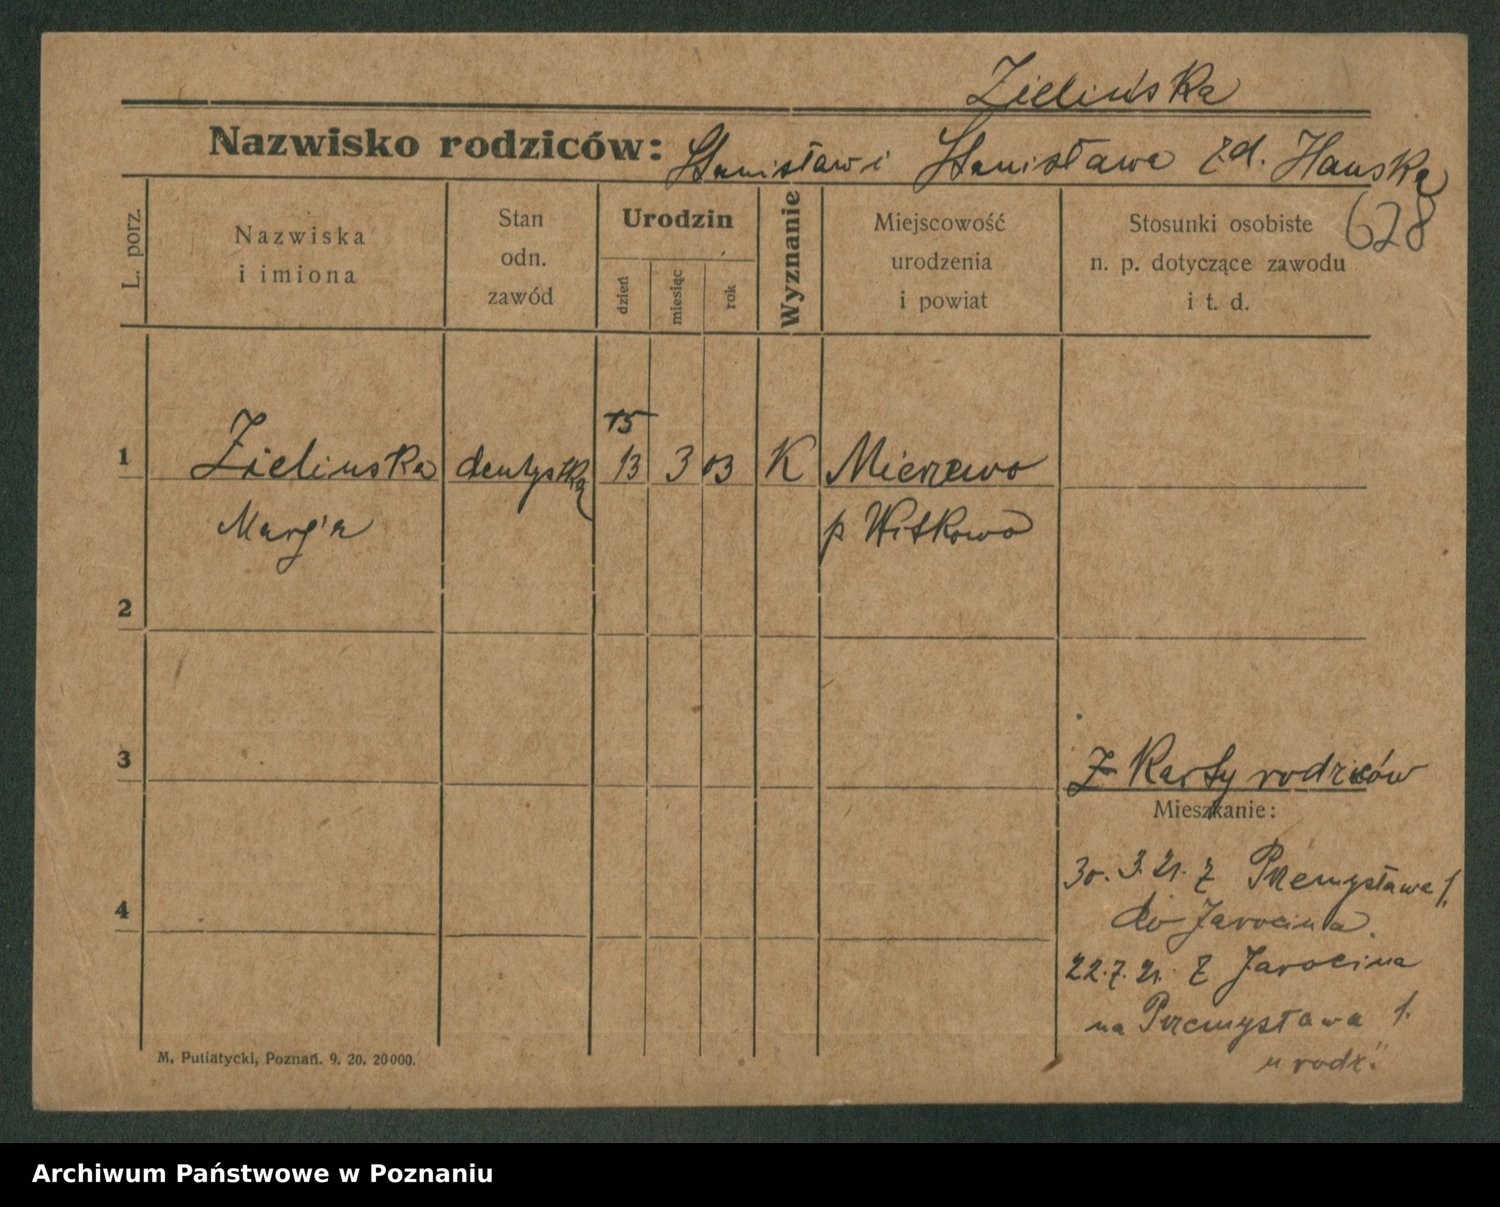 Zielińska
Nazwisko rodziców: Stanisław i Stanisława zd. Hauska
628
L. porz.
Nazwiska
i imiona
Stan
odn.
zawód
Urodzin
dzień
miesiąc
rok
Wyznanie
Miejscowość
urodzenia
i powiat
Stosunki osobiste
n. p. dotyczące zawodu
i t. d.
15
1 Zielinska dentystką 13 3 03 K Mierzewo
Marja p Witkowo
2
3
Z Karty rodziców
Mieszkanie:
30. 3. 21. z Przemysława 1.
4
do Jarocina.
22.7.21. z Jarocina
na Przemysława 1.
u rodz.
M. Putiatycki, Poznań. 9. 20. 20000.
Archiwum Państwowe w Poznaniu